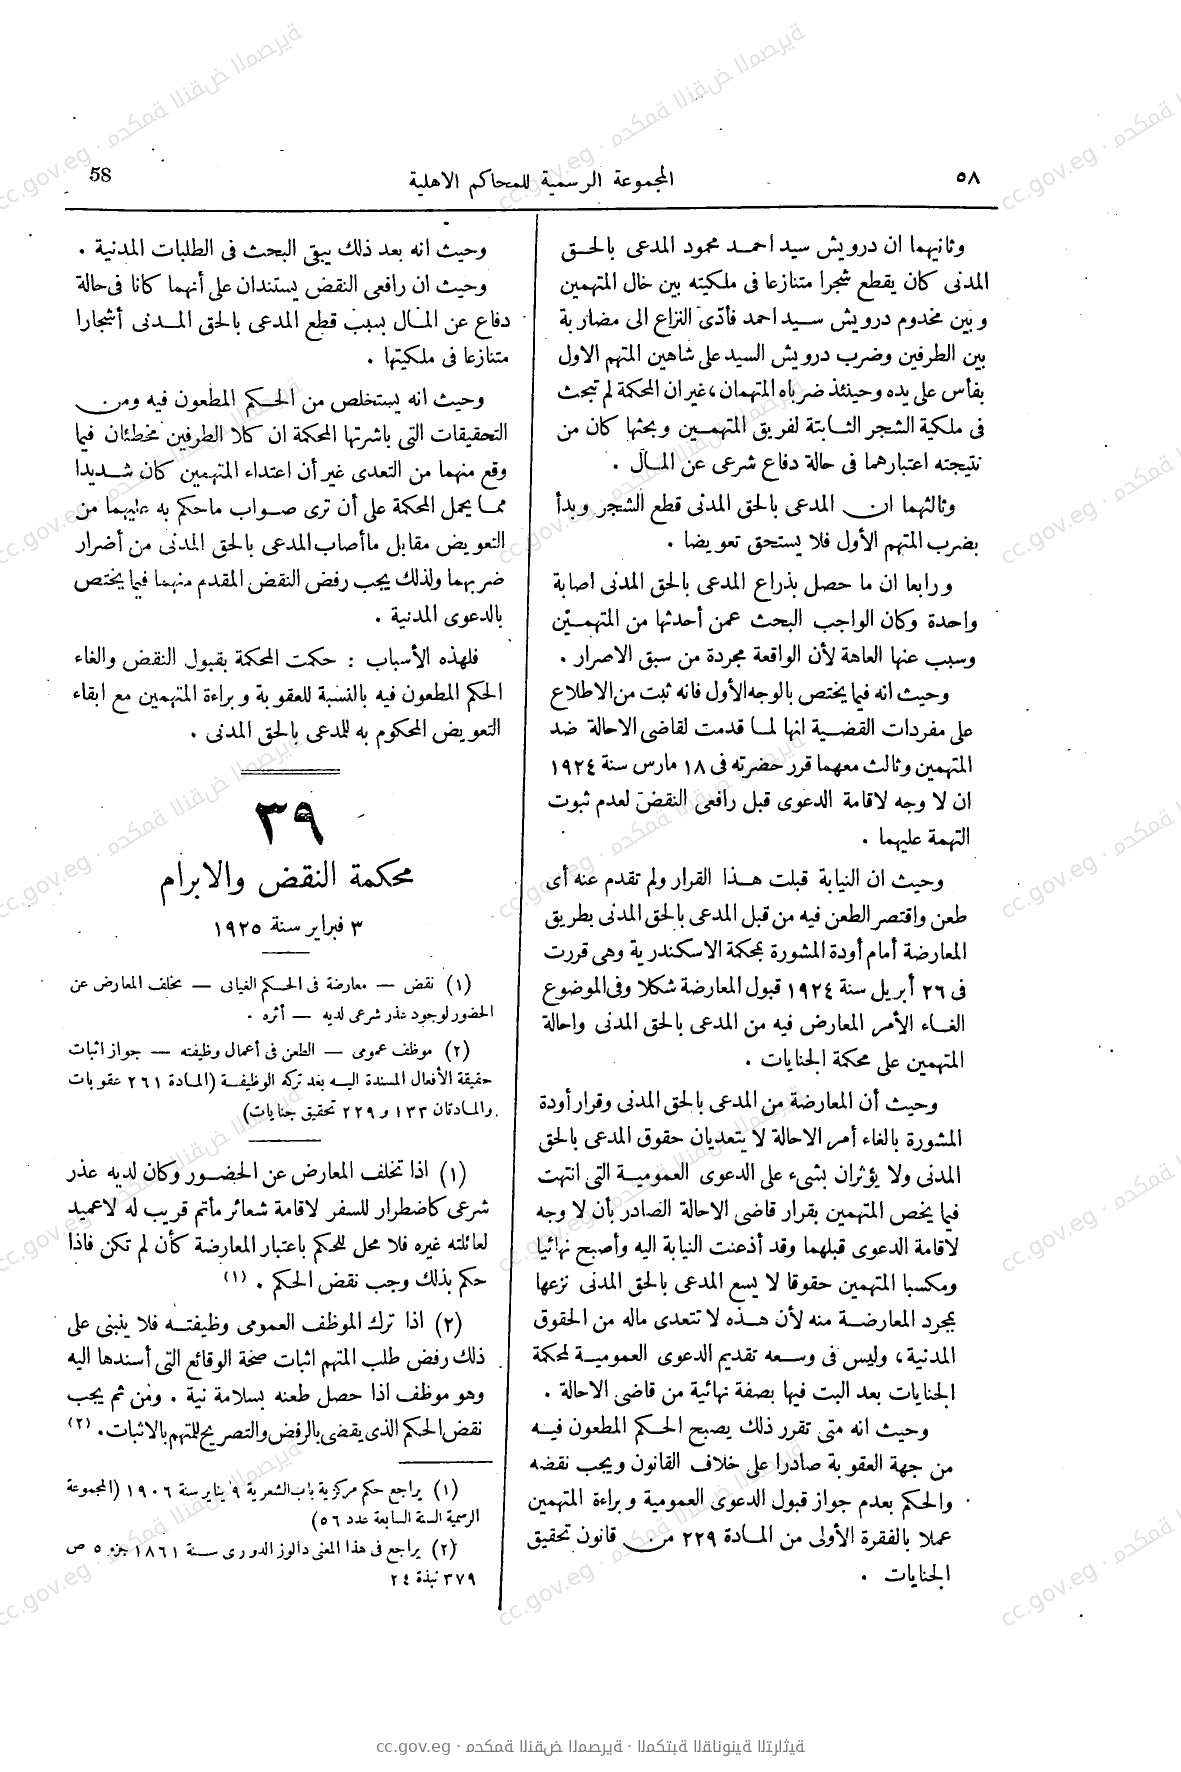 ٥٨
المجموعة الرسمية للمحاكم الاهلية
58
وثانيهما ان درويش سيد احمد محمود المدعى بالحق
المدنى كان يقطع شجرا متنازعا فى ملكيته بين خال المتهمين
وبين مخدوم درويش سيد احمد فأدّى النزاع الى مضاربة
بين الطرفين وضرب درويش السيد على شاهين المتهم الاول
بفأس على يده وحينئذ ضرباه المتهمان، غير ان المحكمة لم تبحث
فى ملكية الشجر الثابتة لفريق المتهمين وبحثها كان من
نتيجته اعتبارهما فى حالة دفاع شرعى عن المال .
وثالثهما ان المدعى بالحق المدنى قطع الشجر وبدأ
بضرب المتهم الأول فلا يستحق تعويضا .
ورابعا ان ما حصل بذراع المدعى بالحق المدنى اصابة
واحدة وكان الواجب البحث عمن أحدثها من المتهمين
وسبب عنها العاهة لأن الواقعة مجردة من سبق الاصرار .
وحيث انه فيما يختص بالوجه الأول فانه ثبت من الاطلاع
على مفردات القضية انها لما قدمت لقاضى الاحالة ضد
المتهمين وثالث معهما قرر حضرته فى ١٨ مارس سنة ١٩٢٤
ان لا وجه لاقامة الدعوى قبل رافعى النقض لعدم ثبوت
التهمة عليهما .
وحيث ان النيابة قبلت هذا القرار ولم تقدم عنه أى
طعن واقتصر الطعن فيه من قبل المدعى بالحق المدنى بطريق
المعارضة أمام أودة المشورة بمحكمة الاسكندرية وهى قررت
فى ٢٦ أبريل سنة ١٩٢٤ قبول المعارضة شكلا وفى الموضوع
الغاء الأمر المعارض فيه من المدعى بالحق المدنى واحالة
المتهمين على محكمة الجنايات .
وحيث أن المعارضة من المدعى بالحق المدنى وقرار أودة
المشورة بالغاء أمر الاحالة لا يتعديان حقوق المدعى بالحق
المدنى ولا يؤثران بشىء على الدعوى العمومية التى انتهت
فيما يخص المتهمين بقرار قاضى الاحالة الصادر بأن لا وجه
لاقامة الدعوى قبلهما وقد أذعنت النيابة اليه وأصبح نهائيا
ومكسبا المتهمين حقوقا لا يسع المدعى بالحق المدنى نزعها
بمجرد المعارضة منه لأن هذه لا تتعدى ماله من الحقوق
المدنية، وليس فى وسعه تقديم الدعوى العمومية لمحكمة
الجنايات بعد البت فيها بصفة نهائية من قاضى الاحالة .
وحيث انه متى تقرر ذلك يصبح الحكم المطعون فيه
من جهة العقوبة صادرا على خلاف القانون ويجب نقضه
والحكم بعدم جواز قبول الدعوى العمومية وبراءة المتهمين
عملا بالفقرة الأولى من المادة ٢٢٩ من قانون تحقيق
الجنايات .
وحيث انه بعد ذلك يبقى البحث فى الطلبات المدنية .
وحيث ان رافعى النقض يستندان على أنهما كانا فى حالة
دفاع عن المال بسبب قطع المدعى بالحق المدنى أشجارا
متنازعا فى ملكيتها .
وحيث انه يستخلص من الحكم المطعون فيه ومن
التحقيقات التى باشرتها المحكمة ان كلا الطرفين مخطئان فيما
وقع منهما من التعدى غير أن اعتداء المتهمين كان شديدا
مما يحمل المحكمة على أن ترى صواب ماحكم به عليهما من
التعويض مقابل ماأصاب المدعى بالحق المدنى من أضرار
ضربهما ولذلك يجب رفض النقض المقدم منهما فيما يختص
بالدعوى المدنية .
فلهذه الأسباب : حكمت المحكمة بقبول النقض والغاء
الحكم المطعون فيه بالنسبة للعقوبة وبراءة المتهمين مع ابقاء
التعويض المحكوم به للمدعى بالحق المدنى .
٣٩
محكمة النقض والابرام
٣ فبراير سنة ١٩٢٥
(١) نقض — معارضة فى الحكم الغيابى — تخلف المعارض عن
الحضور لوجود عذر شرعى لديه — أثره .
(٢) موظف عمومى — الطعن فى أعمال وظيفته — جواز اثبات
حقيقة الأفعال المسندة اليه بعد تركه الوظيفة (المادة ٢٦١ عقوبات
والمادتان ١٣٣ و ٢٢٩ تحقيق جنايات)
(١) اذا تخلف المعارض عن الحضور وكان لديه عذر
شرعى كاضطرار للسفر لاقامة شعائر مأتم قريب له لاعميد
لعائلته غيره فلا محل للحكم باعتبار المعارضة كأن لم تكن فاذا
حكم بذلك وجب نقض الحكم . (١)
(٢) اذا ترك الموظف العمومى وظيفته فلا ينبنى على
ذلك رفض طلب المتهم اثبات صحة الوقائع التى أسندها اليه
وهو موظف اذا حصل طعنه بسلامة نية . ومن ثم يجب
نقض الحكم الذى يقضى بالرفض والتصريح للمتهم بالاثبات. (٢)
(١) يراجع حكم مركزية باب الشعرية ٩ يناير سنة ١٩٠٦ (المجموعة
الرسمية السنة السابعة عدد ٥٦)
(٢) يراجع فى هذا المعنى دالوز الدورى سنة ١٨٦١ جزء ٥ ص
٣٧٩ نبذة ٢٤
cc.gov.eg · محكمة النقض المصرية · المكتبة القانونية التراثية